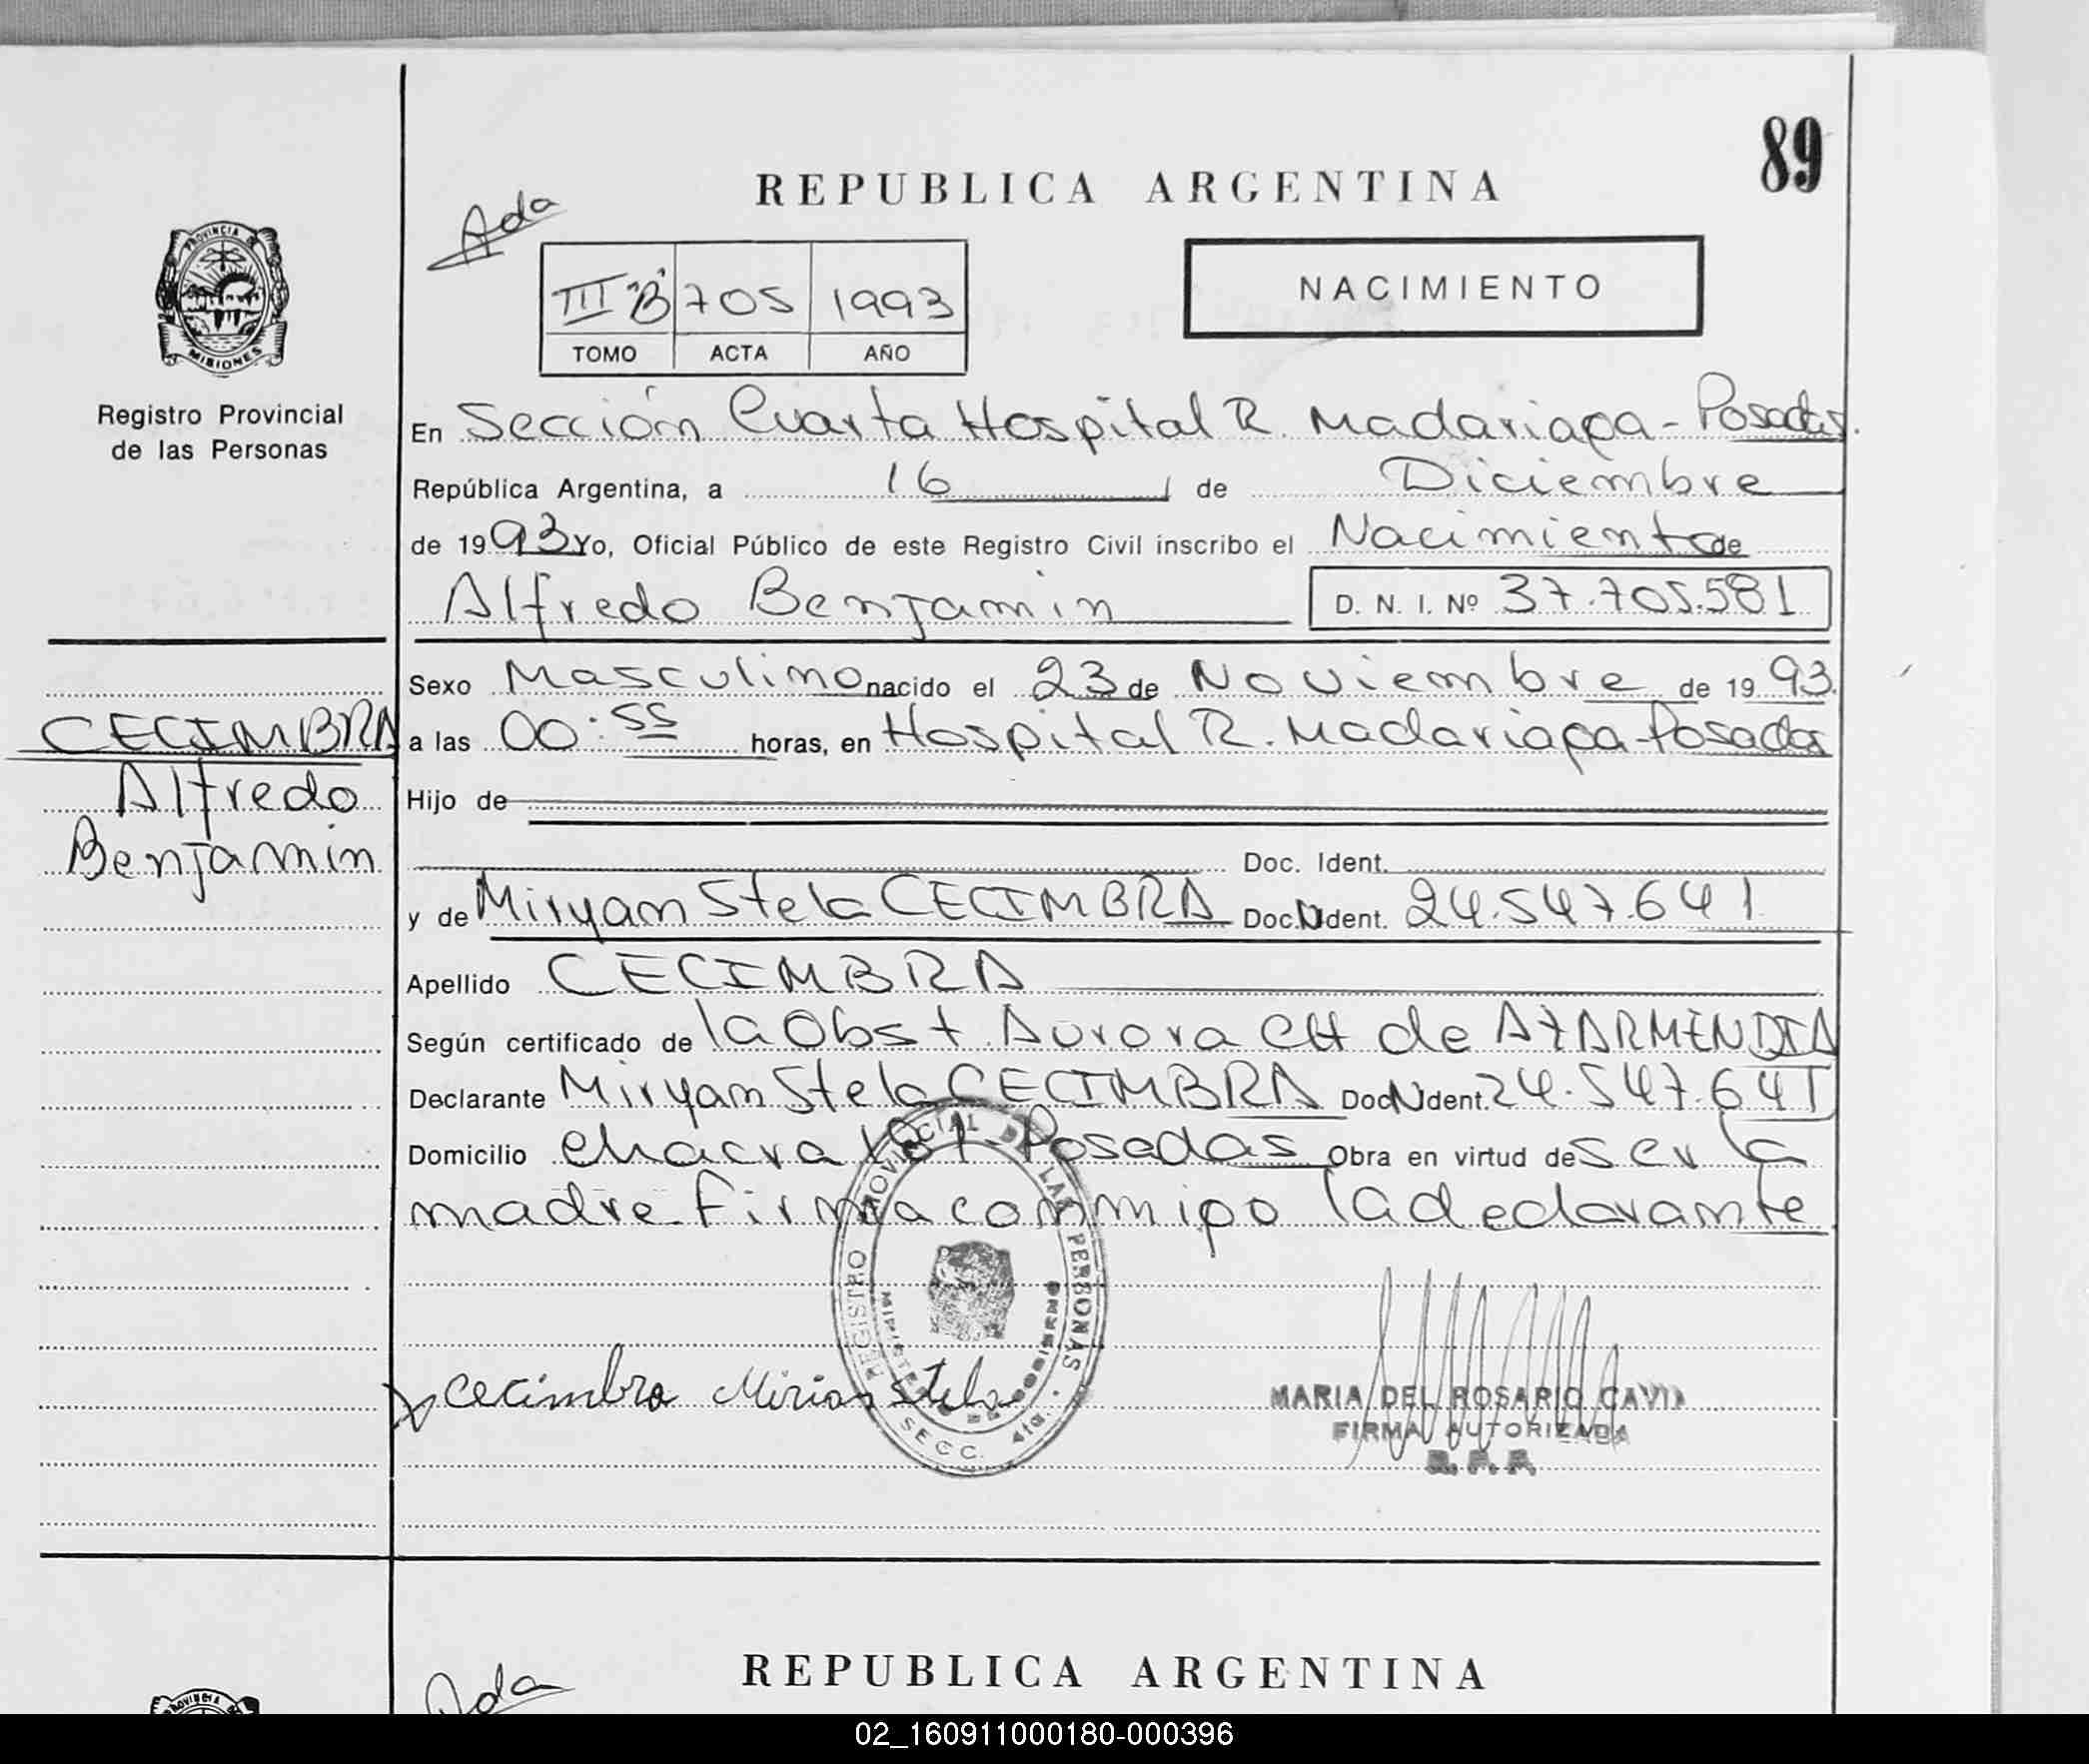 89
REPUBLICA ARGENTINA
Ada
III "B" 705 1993
TOMO ACTA AÑO
NACIMIENTO
PROVINCIA DE
MISIONES
Registro Provincial
de las Personas
En Sección Cuarta Hospital R. Madariaga - Posadas.
República Argentina, a 16 de Diciembre
de 1993 Yo, Oficial Público de este Registro Civil inscribo el Nacimiento de
Alfredo Benjamin D. N. I. Nº 37.705.581
Sexo Masculino nacido el 23 de Noviembre de 1993.
CECIMBRA
Alfredo
Benjamin
a las 00:55 horas, en Hospital R. Madariaga Posadas
Hijo de
Doc. Ident.
y de Miryam Stela CECIMBRA Doc. Ident. 24.547.641
Apellido CECIMBRA
Según certificado de la Obst. Aurora CH de AZARMENDIA
Declarante Miryam Stela CECIMBRA Doc Ident. 24.547.641
Domicilio chacra 181 - Posadas Obra en virtud de ser la
madre. Firma conmigo la declarante
REGISTRO PROVINCIAL DE LAS PERSONAS
MINISTERIO DE GOBIERNO
SECC. 4ta.
Cecimbra Mirian Stela
MARIA DEL ROSARIO CAVIA
FIRMA AUTORIZADA
R. P. P.
REPUBLICA ARGENTINA
Ada
PROVINCIA
02_160911000180-000396